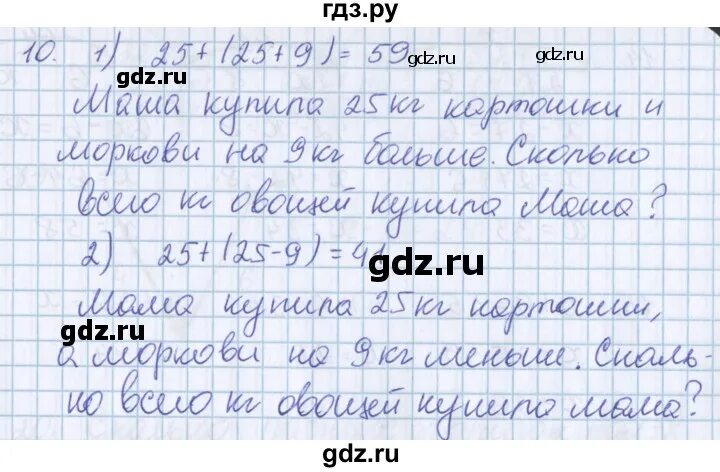 гдз.ру
10. 1) 25+(25+9)=59
gdz.ru gdz.ru gdz.ru
Маша купила 25 кг картошки и
моркови на 9 кг больше. Сколько
gdz.ru
всего кг овощей купила Маша?
2) 25+(25-9)=41
gdz.ru
Мама купила 25 кг картошки,
gdz.ru
а моркови на 9 кг меньше. Сколь-
ко всего кг овощей купила мама?
gdz.ru gdz.ru
gdz.ru